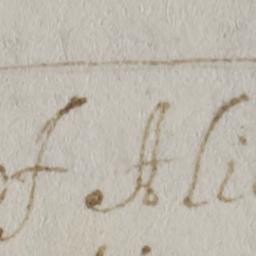 of Ali